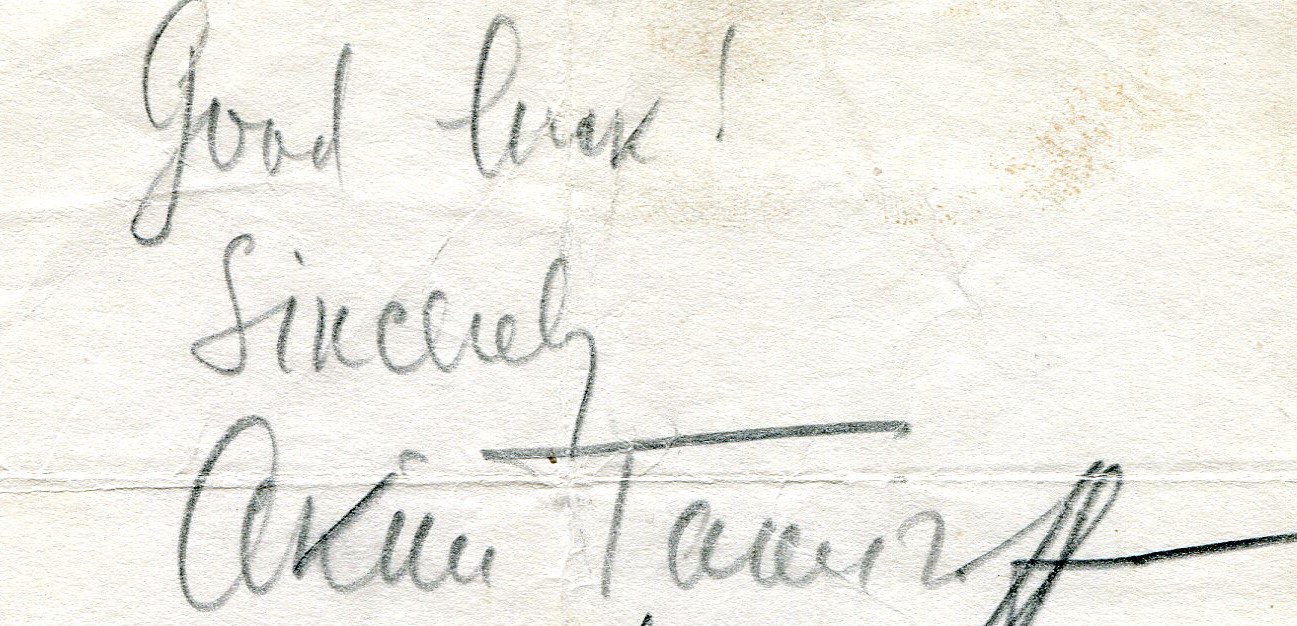 Good luck!
Sincerely
Akim Tamiroff